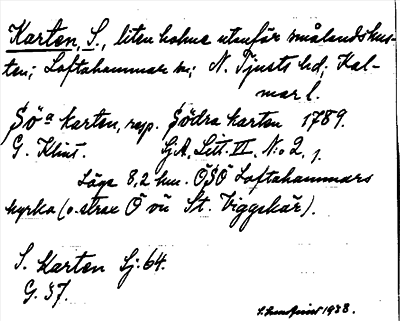 Karten, S., liten holme utanför smålandskus-
ten; Loftahammar sn; N. Tjusts hd; Kal-
mar l.
Söa karten, resp. Södra karten 1789.
G. Klint. SjA, Litt. VI, N:o 2, 1.
Läge 8,2 km. OSO Loftahammars
kyrka (o. strax O om St. Viggskär).
S. Karten Sj: 64.
G. 37.
1938.